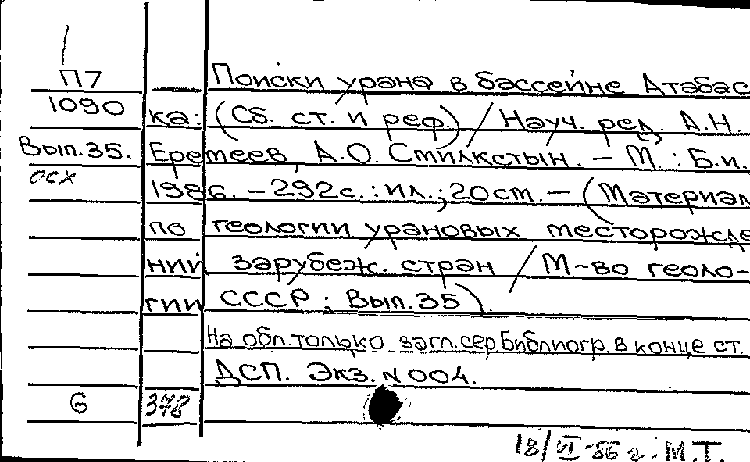 П7 Поиски урана в бассейне Атабас
1090 ка: (Сб. ст. и реф.) / Науч. ред. А.Н.
Вып.35. Еремеев, А.О. Смилкстын. – М.: Б.и.
осх 1986. – 292с.: ил.; 20см. – (Материал
по геологии урановых месторожде
ний зарубеж. стран / М-во геоло-
гии СССР; Вып.35).
На обл. только загл. сер Библиогр. в конце ст.
ДСП. Экз. N 004.
6 378
18/VI-86 г. М.Т.